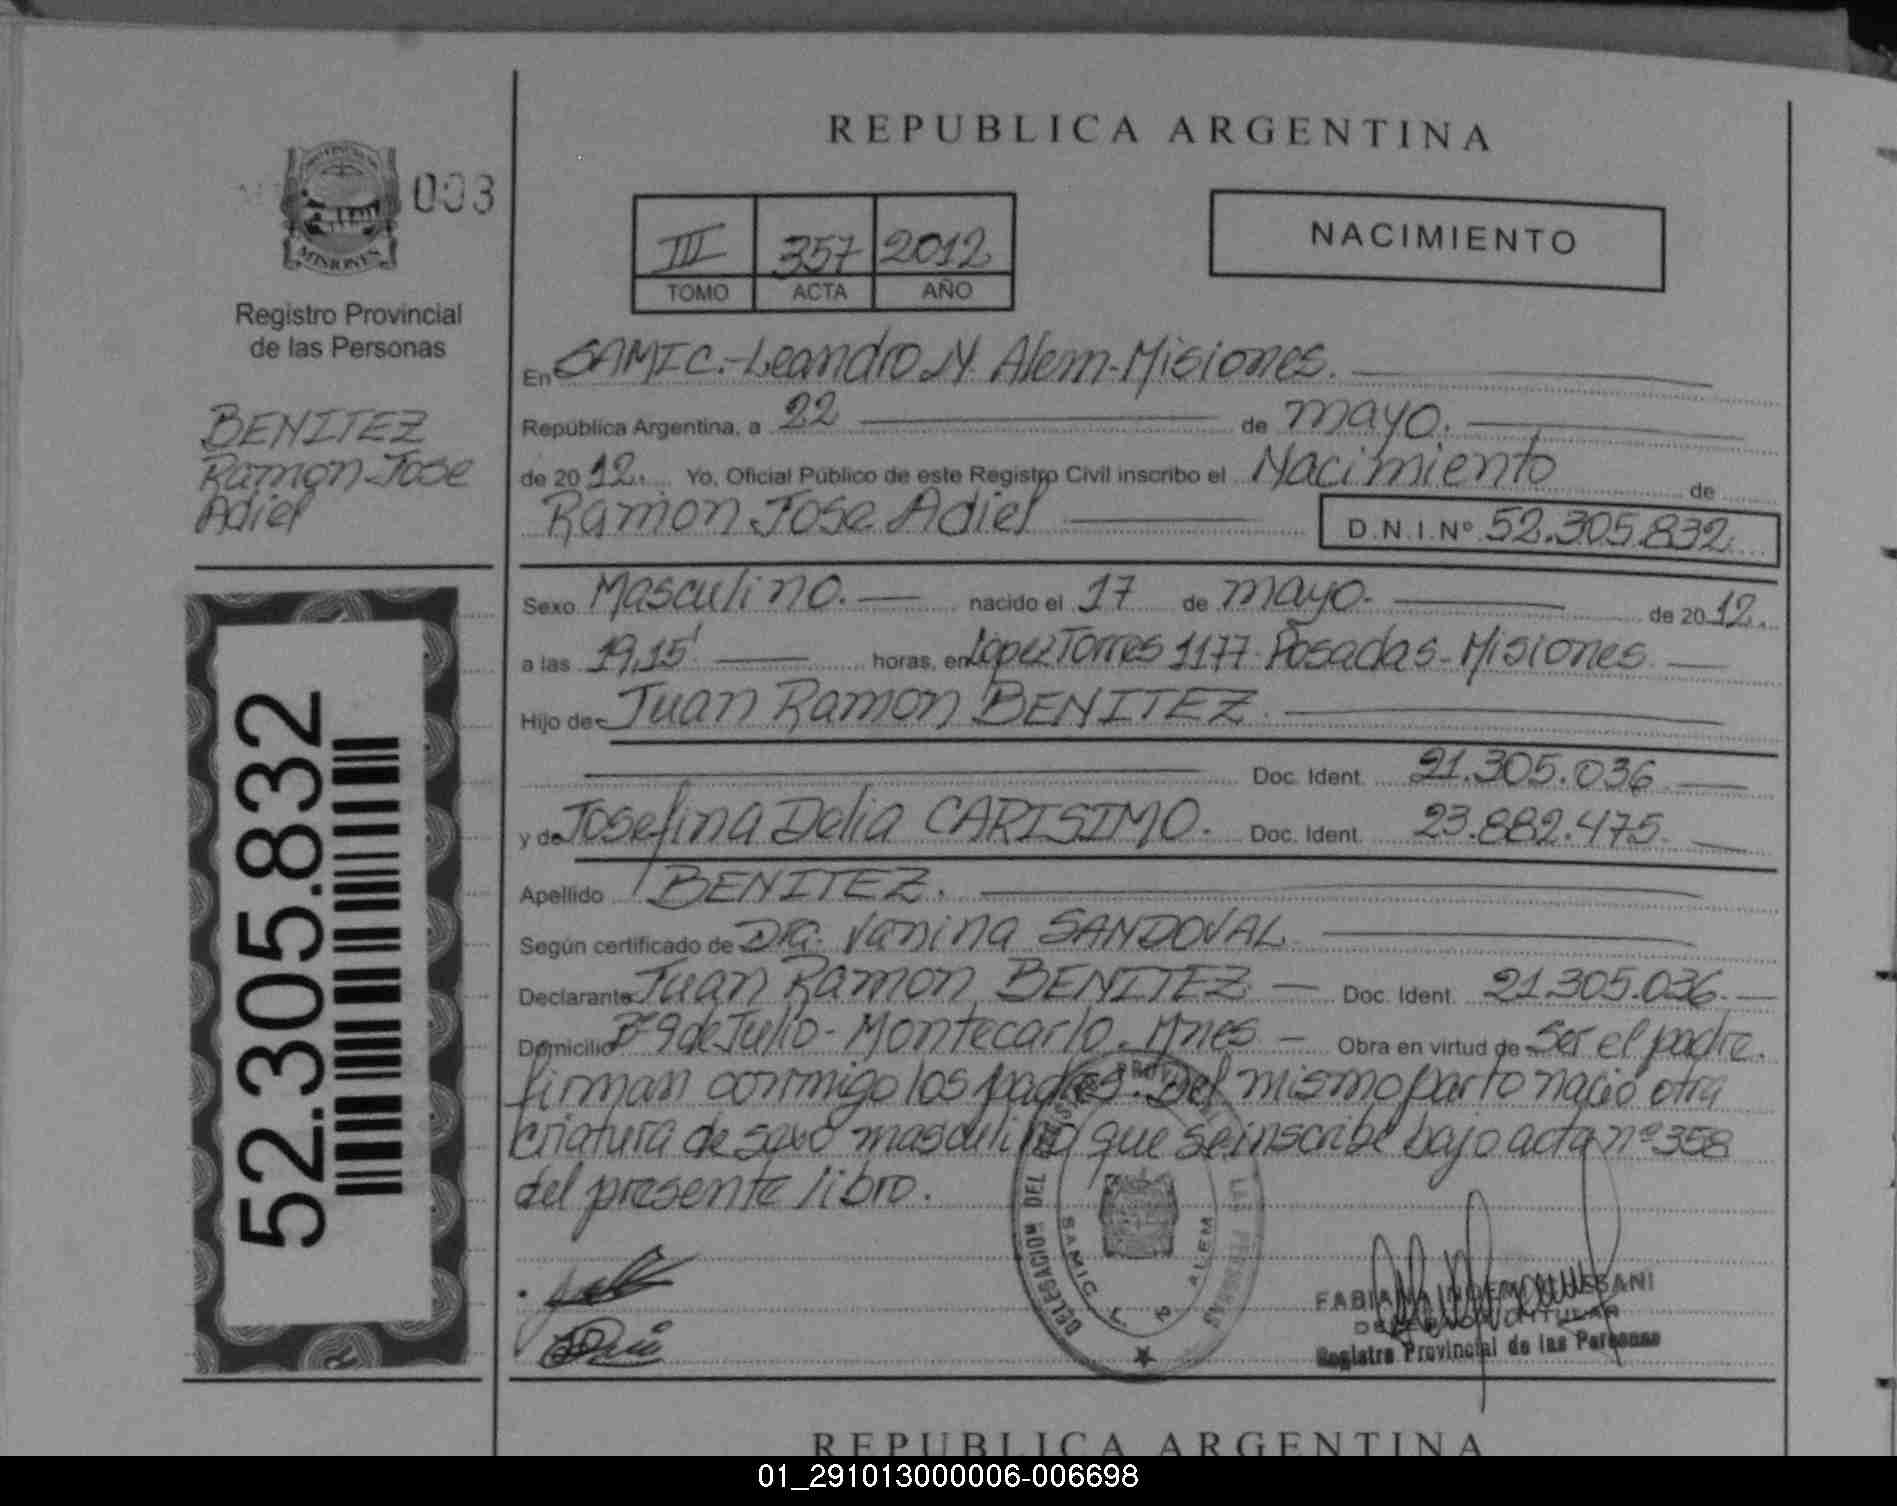 REPUBLICA ARGENTINA
MISIONES
003
Registro Provincial
de las Personas
BENITEZ
Ramon Jose
Adiel
52.305.832
III 357 2012
TOMO ACTA AÑO
NACIMIENTO
En SAMIC.-Leandro N. Alem-Misiones.
República Argentina, a 22 de mayo.
de 2012. Yo, Oficial Público de este Registro Civil inscribo el Nacimiento de
Ramon Jose Adiel D.N.I.Nº 52.305.832
Sexo Masculino. nacido el 17 de mayo. de 2012.
a las 19,15' horas, en Lopez Torres 1177 Posadas-Misiones
Hijo de Juan Ramon BENITEZ.
Doc. Ident. 21.305.036
y de Josefina Delia CARISIMO. Doc. Ident. 23.882.475.
Apellido BENITEZ.
Según certificado de Dra. Vanina SANDOVAL
Declarante Juan Ramon BENITEZ Doc. Ident. 21.305.036.
Domicilio Bº 9 de Julio-Montecarlo. Mnes Obra en virtud de ser el padre.
firman conmigo los padres. Del mismo parto nació otra
criatura de sexo masculino que se inscribe bajo acta nº 358
del presente libro.
DELEGACION DEL LAS PERSONAS
SAMIC L. N. ALEM
Registro Provincial de las Personas
REPUBLICA ARGENTINA
01_291013000006-006698